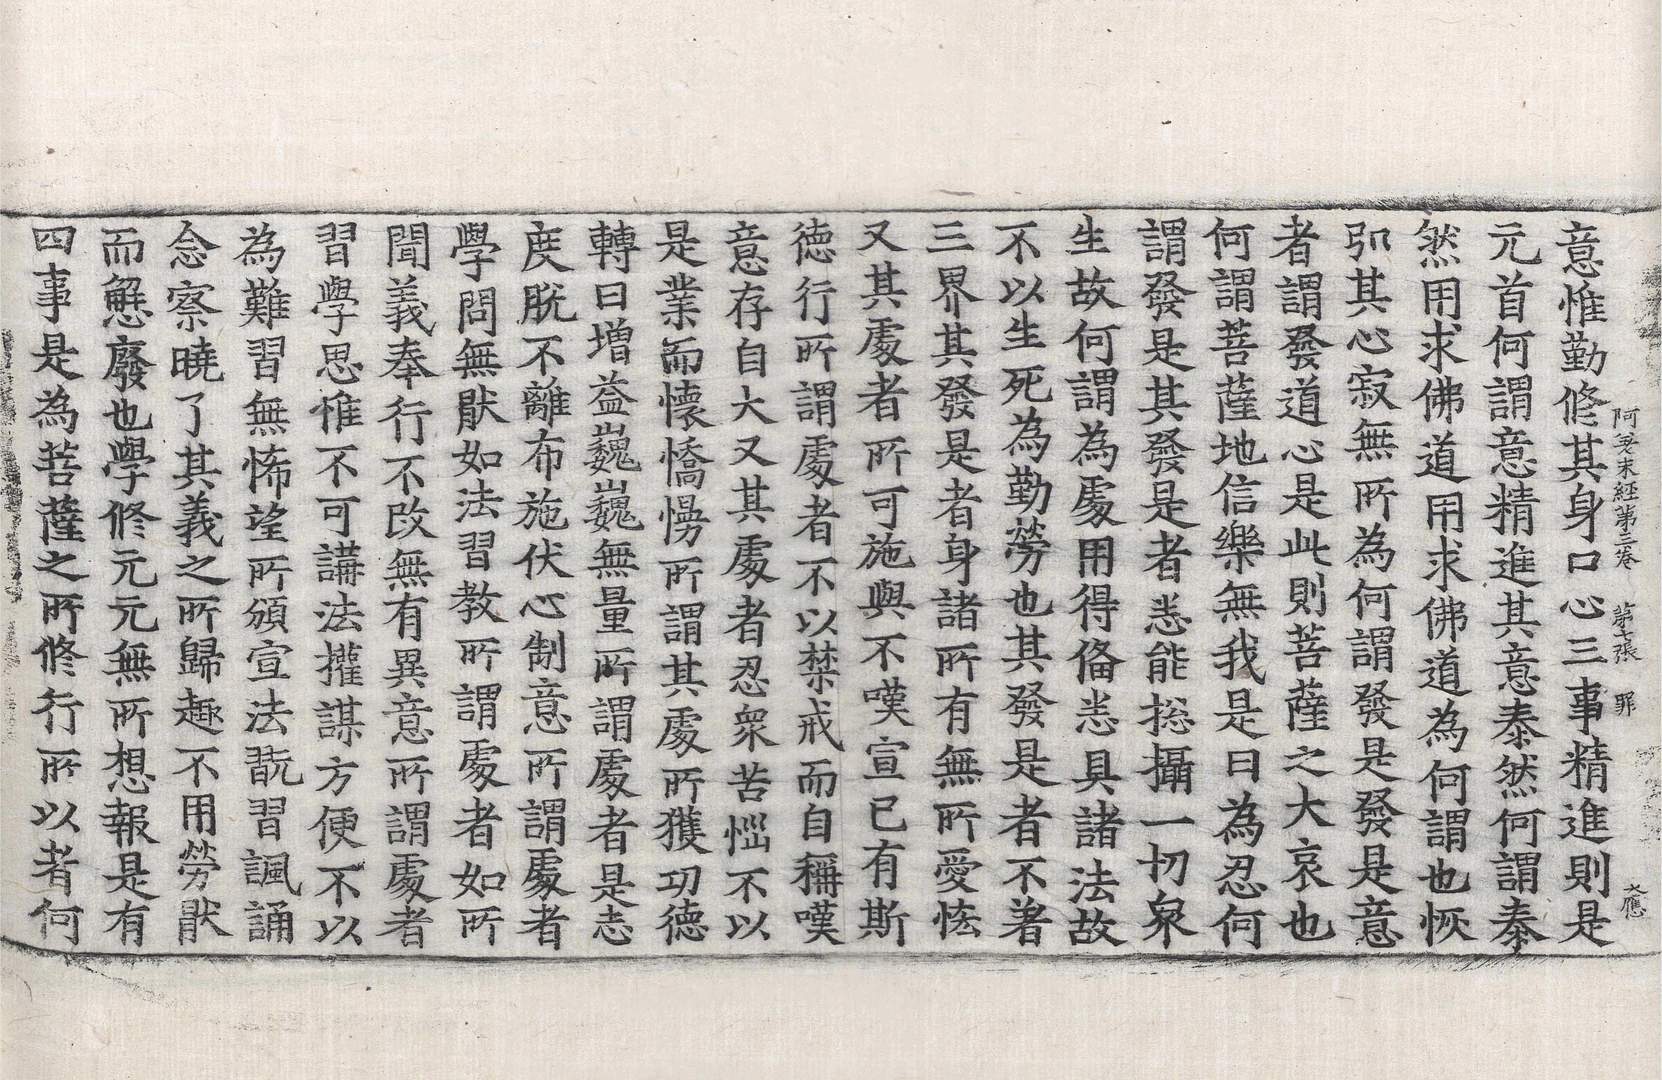 阿差末經第三卷　第七張　罪　大應
意惟勤修其身口心三事精進則是
元首何謂意精進其意泰然何謂泰
然用求佛道用求佛道為何謂也恢
弘其心寂無所為何謂發是發是意
者謂發道心是此則菩薩之大哀也
何謂菩薩地信樂無我是曰為忍何
謂發是其發是者悉能捴攝一切眾
生故何謂為處用得俻悉具諸法故
不以生死為勤勞也其發是者不著
三界其發是者身諸所有無所愛恡
又其處者所可施與不嘆宣已有斯
德行所謂處者不以禁戒而自稱嘆
意存自大又其處者忍眾苦惱不以
是業而懷憍慢所謂其處所獲功德
轉曰增益巍巍無量所謂處者是恚
度脫不離布施伏心制意所謂處者
學問無猒如法習教所謂處者如所
聞義奉行不改無有異意所謂處者
習學思惟不可講法攉謀方便不以
為難習無悕望所頒宣法翫習諷誦
念察曉了其義之所歸趣不用勞猒
而懈廢也學修元元無所想報是有
四事是為菩薩之所修行所以者何